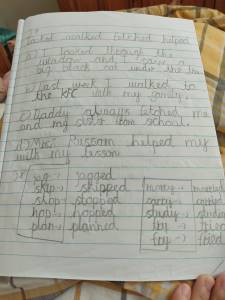 looked walked fetched helped
I looked through the
window and I saw a
big black cat under the tree
Last week I walked to
the KFC with my family.
Daddy always fetched me
and my sister from school.
Mrs. Russom helped my
with my lesson
jog → jogged
skip → skipped
stop → stopped
hop → hopped
plan → planned
marry → married
carry → carried
study → studied
try → tried
fry → fried